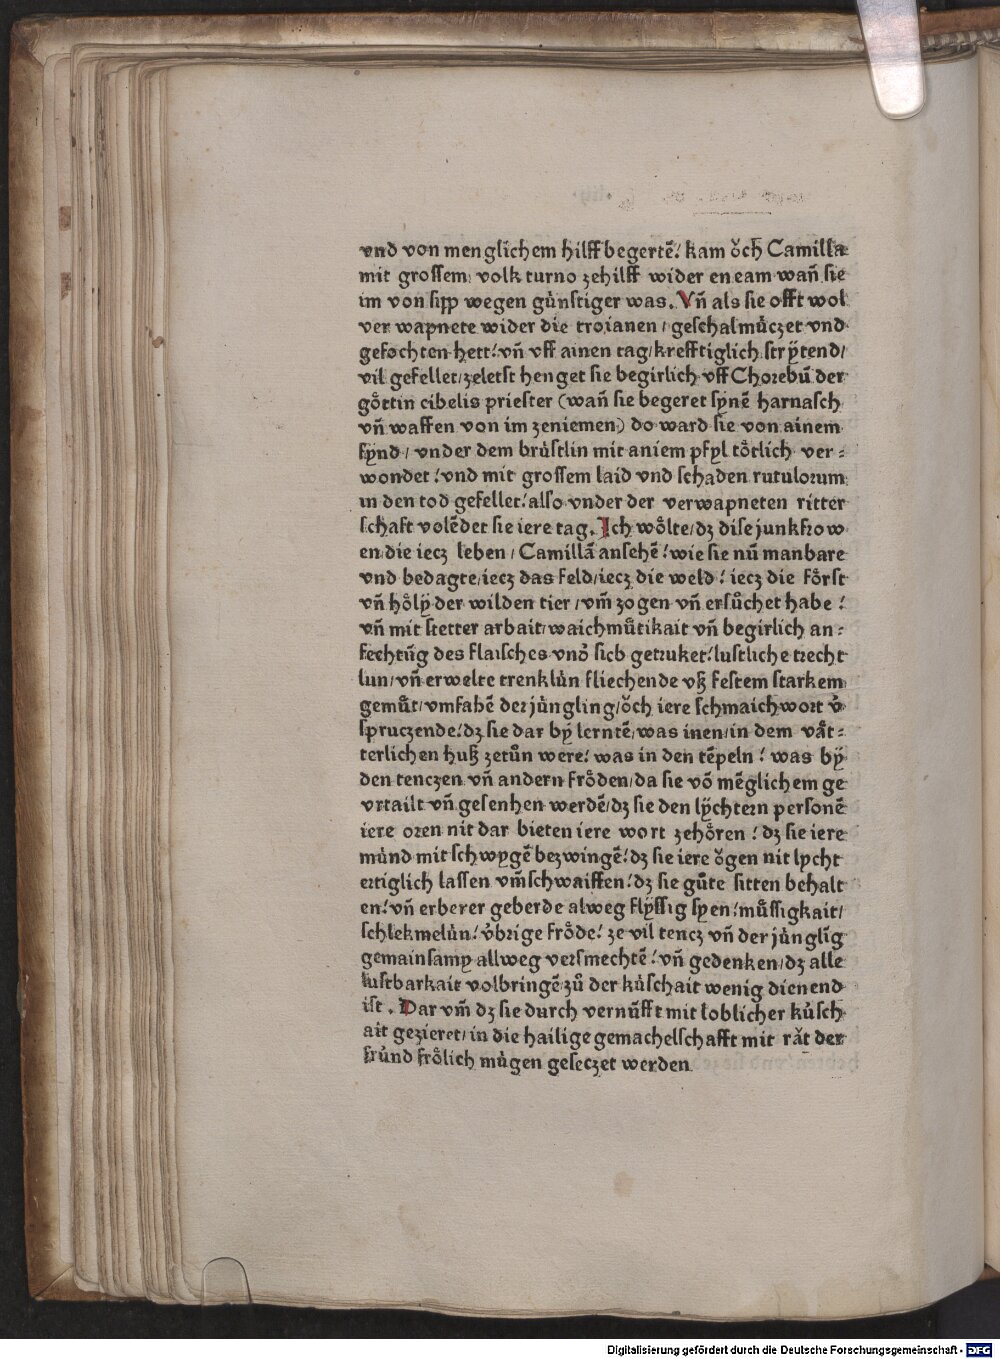 vnd von menglichem hilff begertē! kam ǒch Camilla
mit grossem volk turno zehilff wider eneam wañ sie
im von sipp wegen gu̇nstiger was. Vñ als sie offt wol
ver wapnete wider die troianen / geschalmůczet vnd
gefochten hett! vñ vff ainen tag/krefftiglich strÿtend/
vil gefellet/zeletst henget sie begirlich vff Chorebū der
goͤttin cibelis priester (wañ sie begeret synē harnasch
vñ waffen von im zeniemen) do ward sie von ainem
fynd / vnder dem bru̇stlin mit aniem pfyl toͤtlich ver⸗
wondet! vnd mit grossem laid vnd schaden rutulorum
in den tod gefellet! also vnder der verwapneten ritter
schaft volēdet sie iere tag. Ich woͤlte/dz dise junkfrow
en/die iecz leben / Camillā ansehē! wie sie nū manbare
vnd bedagte/iecz das feld/iecz die weld! iecz die foͤrst
vñ hoͤlÿ der wilden tier / vm̄ zogen vñ ersůchet habe!
vñ mit stetter arbait/waichmůtikait vñ begirlich an⸗
fechtūg des flaisches vnd sich getruket! lustliche trecht
lun/vñ erwelte trenklu̇n fliechende vß festem starkem
gemůt/vmfahē der ju̇ngling/ǒch iere schmaichwort v̓
spruczende! dz sie dar bÿ lerntē/was inen/in dem vaͤt⸗
terlichen huß zetůn were! was in den tēpeln! was bÿ
den tenczen vñ andern froͤden/da sie vō mēglichem ge
vrtailt vñ gesenhen werdē/dz sie den lÿchtern personē
iere oren nit dar bieten iere wort zehoͤren! dz sie iere
mu̇nd mit schwygē bezwingē! dz sie iere ǒgen nit lycht
ertiglich lassen vm̄schwaiffen! dz sie gůte sitten behalt
en! vñ erberer geberde alweg flÿssig syen! můssigkait/
schlekmelu̇n! v̓brige froͤde! ze vil tencz vñ der ju̇nglīg
gemainsamy allweg versmechtē! vñ gedenken/dz alle
lustbarkait volbringē/zů der ku̇schait wenig dienend
ist. Dar vm̄ dz sie durch vernūfft mit loblicher ku̇sch
ait gezieret/in die hailige gemachelschafft mit raͤt der
fru̇nd froͤlich mu̇gen geseczet werden
Digitalisierung gefördert durch die Deutsche Forschungsgemeinschaft - DFG